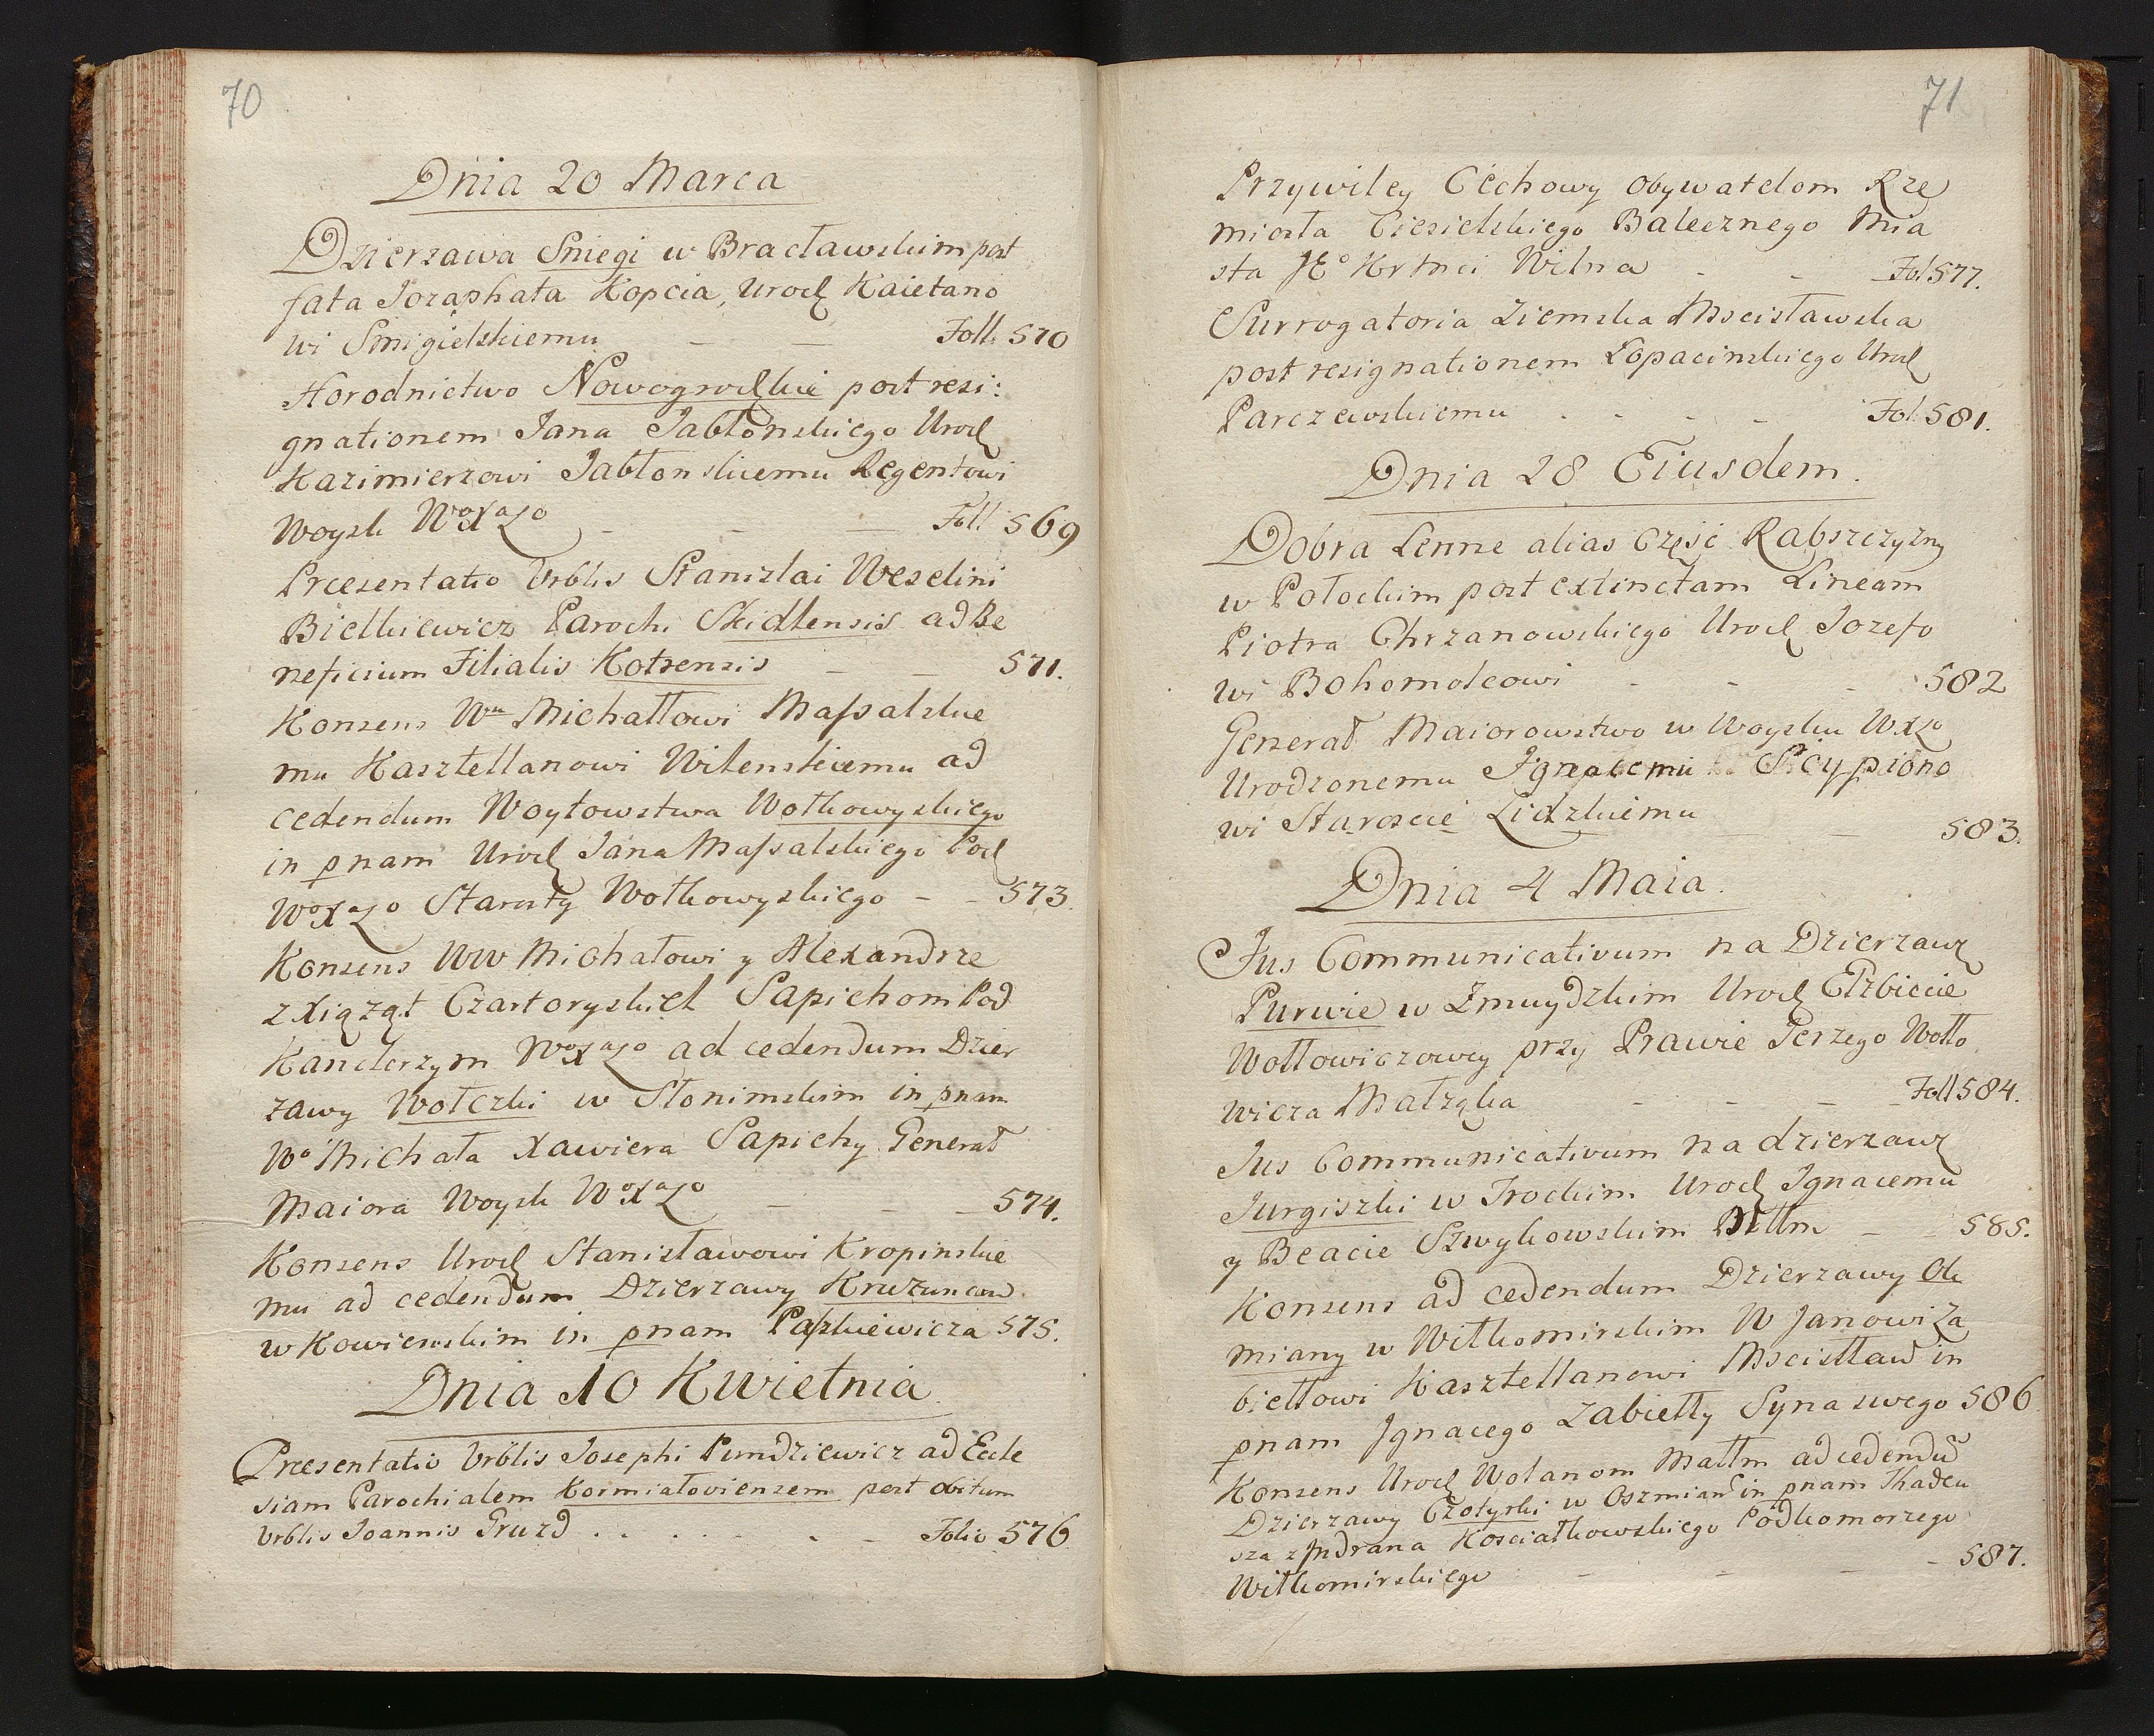 70
Dnia 20 Marca
Dzierzawa Sniegi w Bracławskim post
fata Jozaphata Kopcia, Urod Kaietano
wi Smigielskiemu - - Foll: 570
Horodnictwo Nowogrodzkie post resi:
gnationem Jana Jabłonskiego Urod
Kazimierzowi Jabłonskiemu Regentowi
Woysk WoXaLo - - - Foll 569
Præsentatio Vrblis Stanislai Weselini
Bielkiewicz Parochi Skidlensis ad Be
neficium Filialis Kotrensis - - 571.
Konsens Wu Michałłowi Massalskie
mu Kasztellanowi Wilenskiemu ad
cedendum Woytowstwa Wołkowyskiego
in pnam Urod Jana Massalskiego Pod
WoXaLo Starosty Wołkowyskiego - - 573.
Konsens WW Michałowi y Alexandrze
z Xiąząt Czartoryskich Sapiehom Pod
Kanclerzym WoXaLo ad cedendum Dzier
zawy Wołczki w Słonimskim in pnam
Wo Michała Xawiera Sapiehy Generał
Maiora Woysk WoXaLo - - - 574.
Konsens Urod Stanisławowi Kropinskie
mu ad cedendum Dzierzawy Kruzuncow
w Kowienskim in pnam Paszkiewicza 575.
Dnia 10 Kwietnia
Præsentatio Vrblis Josephi Pundziewicz ad Eccle
siam Parochialem Kormiałoviensem post obitum
Vrblis Joannis Gruzd . . . . - - - Folio 576
71
Przywiley Cechowy Obywatelom Rze
miosła Ciesielskiego Balecznego Mia
sta JKo Hrtnci Wilna - - Fol 577.
Surrogatoria Ziemska Mscisławska
post resignationem Łopacinskiego Urod
Parczewskiemu . - - - Fol. 581.
Dnia 28 Eiusdem.
Dobra Lenne alias Część Rabszczyzny
w Połockim post extinctam Lineam
Piotra Chrzanowskiego Urod Jozefo
wi Bohomolcowi - - - 582
Generał Maiorowstwo w Woysku WXLo
Urodzonemu Ignacemu Scypiono
wi Staroscie Lidzkiemu - 583.
Dnia 4 Maia.
Jus Communicativum na Dzierzawę
Purwie w Zmuydzkim Urod Elzbiecie
Wołłowiczowey przy Prawie Jerzego Wołło
wicza Małząka - - - Foll 584.
Jus Communicativum na dzierzawę
Jurgiszki w Trockim Urod Ignacemu
y Beacie Szwykowskim Młłm - - 585.
Konsens ad cedendum Dzierzawy Ok
miany w Wiłkomirskim W Janowi Za
biełłowi Kasztellanowi Mscisław in
pnam Ignacego Zabiełły Syna swego 586.
Konsens Urod Wolanom Małłm ad cedendū
Dzierzawy Czotyrki w Oszmian in pnam Thadeu
sza z Jndrana Kosciałkowskiego Podkomorzego
Wiłkomirskiego - - - - 587.